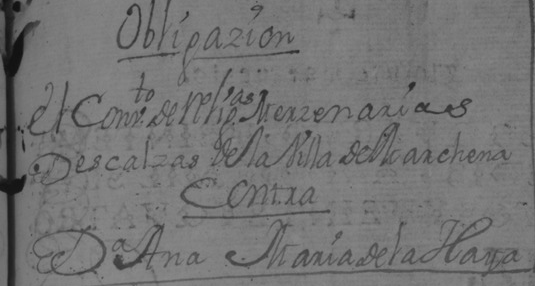 Obligazion
El Conv.to de relig.as Merzenarias
Descalzas de la Villa de Marchena
Contra
D.a Ana Maria de la Haya